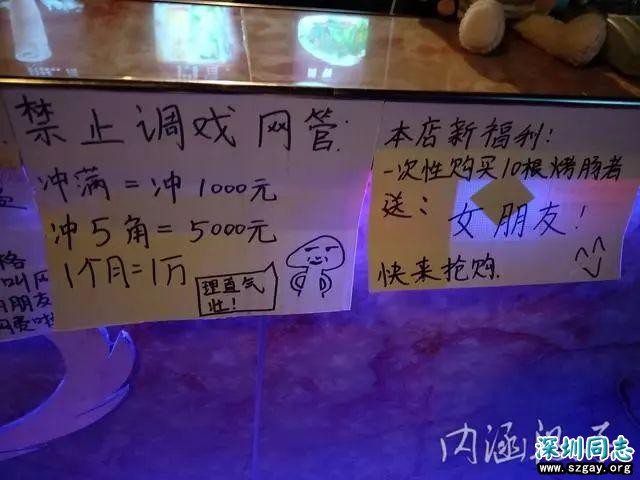 禁止调戏网管
冲满=冲1000元
冲5角=5000元
1个月=1万
理直气
壮!
本店新福利:
一次性购买10根烤肠者
送:
女朋友!
快来抢购.
格
叫网
朋友
内涵
深圳同志
www.szgay.org